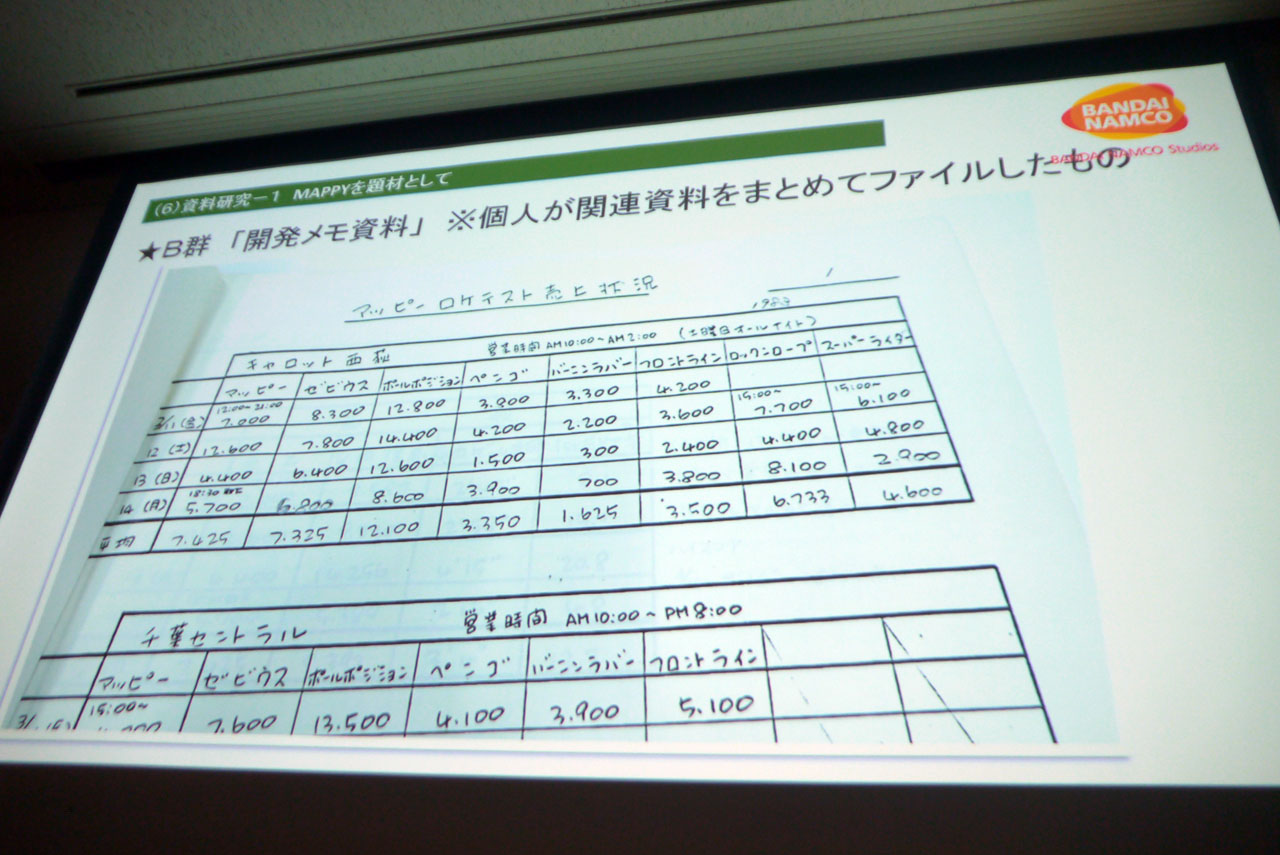 BANDAI
NAMCO
BANDAI NAMCO Studios
(6)資料研究－1 MAPPYを題材として
★B群 「開発メモ資料」 ※個人が関連資料をまとめてファイルしたもの
マッピー ロケテスト売上状況
1983
キャロット西荻 営業時間 AM10:00~AM2:00 (土曜日オールナイト)
マッピー ゼビウス ポールポジション ペンゴ バーニンラバー フロントライン ロックンロープ スーパーライダー
3/11(金) 12:00~21:00 7.000 8.300 12.800 3.800 3.300 4.200
12 (土) 12.600 7.800 14.400 4.200 2.200 3.600 15:00~ 7.700 15:00~ 6.100
13 (日) 4.400 6.400 12.600 1.500 300 2.400 4.400 4.800
14 (月) 18:30 5.700 6.800 8.600 3.900 700 3.800 8.100 2.900
平均 7.425 7.325 12.100 3.350 1.625 3.500 6.733 4.600
千葉セントラル 営業時間 AM10:00~PM8:00
マッピー ゼビウス ポールポジション ペンゴ バーニンラバー フロントライン
15:00~ 7.600 13.500 4.100 3.900 5.100